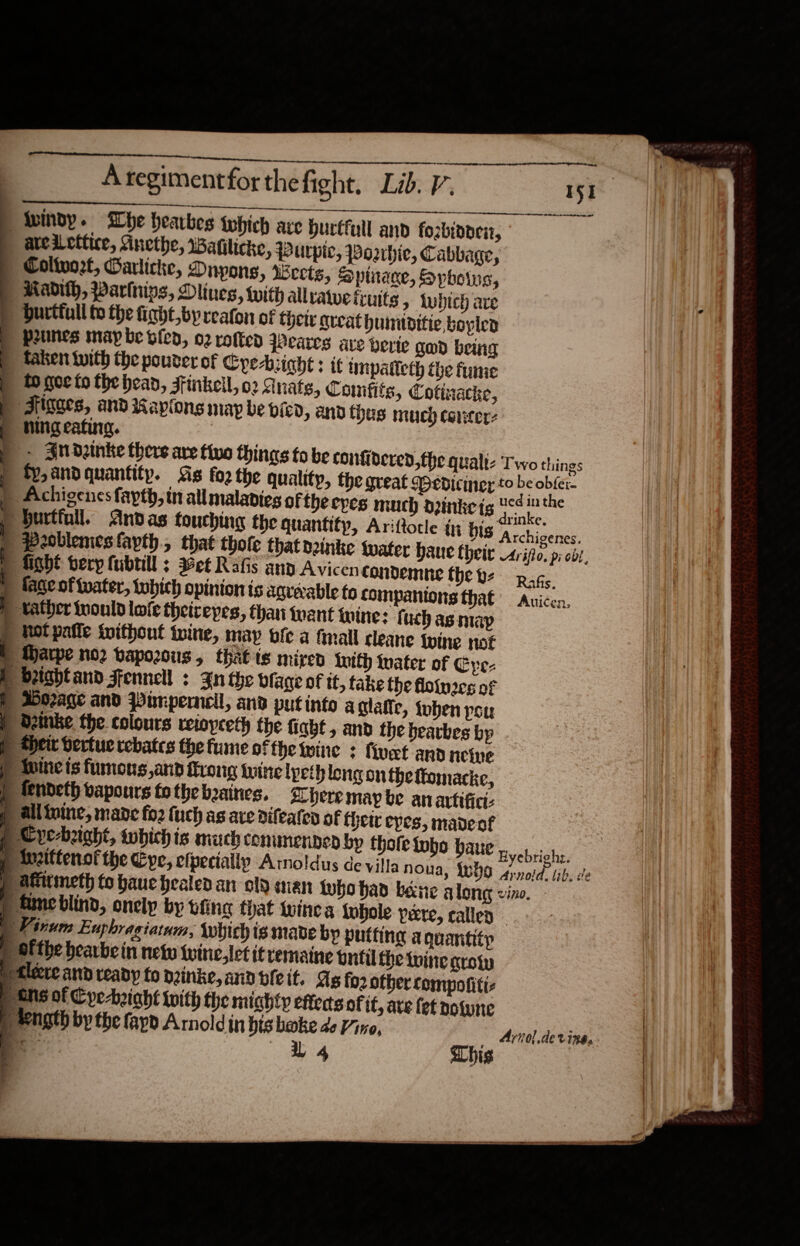 A regiment for the sight. Lib. V. 151
windy. The hearbes which are hurtfull and forbidden,
are Lettice, Anethe, Basilicke, Purpie, Porthie, Cabbage,
Colwort, Garlicke, Onyons, Beets, Spinage, Sybows,
Radish, Parsnips, Oliues, with all rawe fruits, which are
hurtfull to the sight, by reason of their great humiditie, boyled
prunes may be vsed, or rosted Peares are verie good being
taken with the pouder of Eye-bright: it impasseth the fume
to goe to the head, Finkell, or Anats, Comfits, Cotinacke,
Figges, and Raysons may be vsed, and thus much concer-
ning eating.
In drinke there are two things to be considered, the quali-
ty, and quantity. As for the quality, the great Medicinier
Achigenes sayth, in all maladies of the eyes much drinke is
hurtfull. And as touching the quantity, Aristotle in his
Problemes sayth, that those that drinke water haue their
sight very subtill: Yet Rasis and Avicen condemne the v-
sage of water, which opinion is agreeable to companions that
rather would lose their eyes, than want wine: such as may
not passe without wine, may vse a small cleane wine not
sharpe nor vaporous, that is mixed with water of Eye-
bright and Fennell: In the vsage of it, take the flowres of
Borage and Pimpernell, and put into a glasse, when you
drinke the colours reioyceth the sight, and the hearbes by
their vertue rebates the fume of the wine: sweet and newe
wine is fumous, and strong wine lyeth long on the stomacke,
sendeth vapours to the braines. There may be an artifici-
all wine, made for such as are diseased of their eyes, made of
Eye-bright, which is much commended by those who haue
written of the Eye, especially Arnoldus de villa noua, who
affirmeth to haue healed an old man who had béene a long
time blind, onely by vsing that wine a whole yéere, called
Vinum Euphragiatum, which is made by putting a quantity
of the hearbe in new wine, let it remaine vntil the wine grow
cléere and ready to drinke, and vse it. As for other compositi-
ons of Eye-bright with the mighty effects of it, are set downe
length by the sayd Arnold in his booke de Vino.
L 4 This
Two things
to be obser-
ued in the
drinke.
Archigenes.
Aristo. probl.
Rasis.
Auicen.
Eyebright.
Arnold. lib. de
vino.
Arnol. de vino.